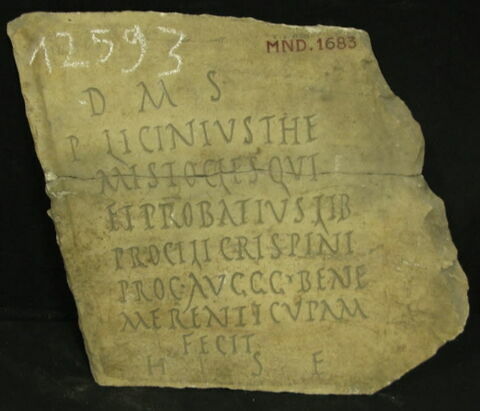 12593
MND.1683
D M S
P LICINIVS THE
MISTOCLES QVI
ET PROBATIVS LIB
PROCILI CRISPINI
PROC · AVGGG · BENE
MERENTI CVPAM
FECIT
H S E